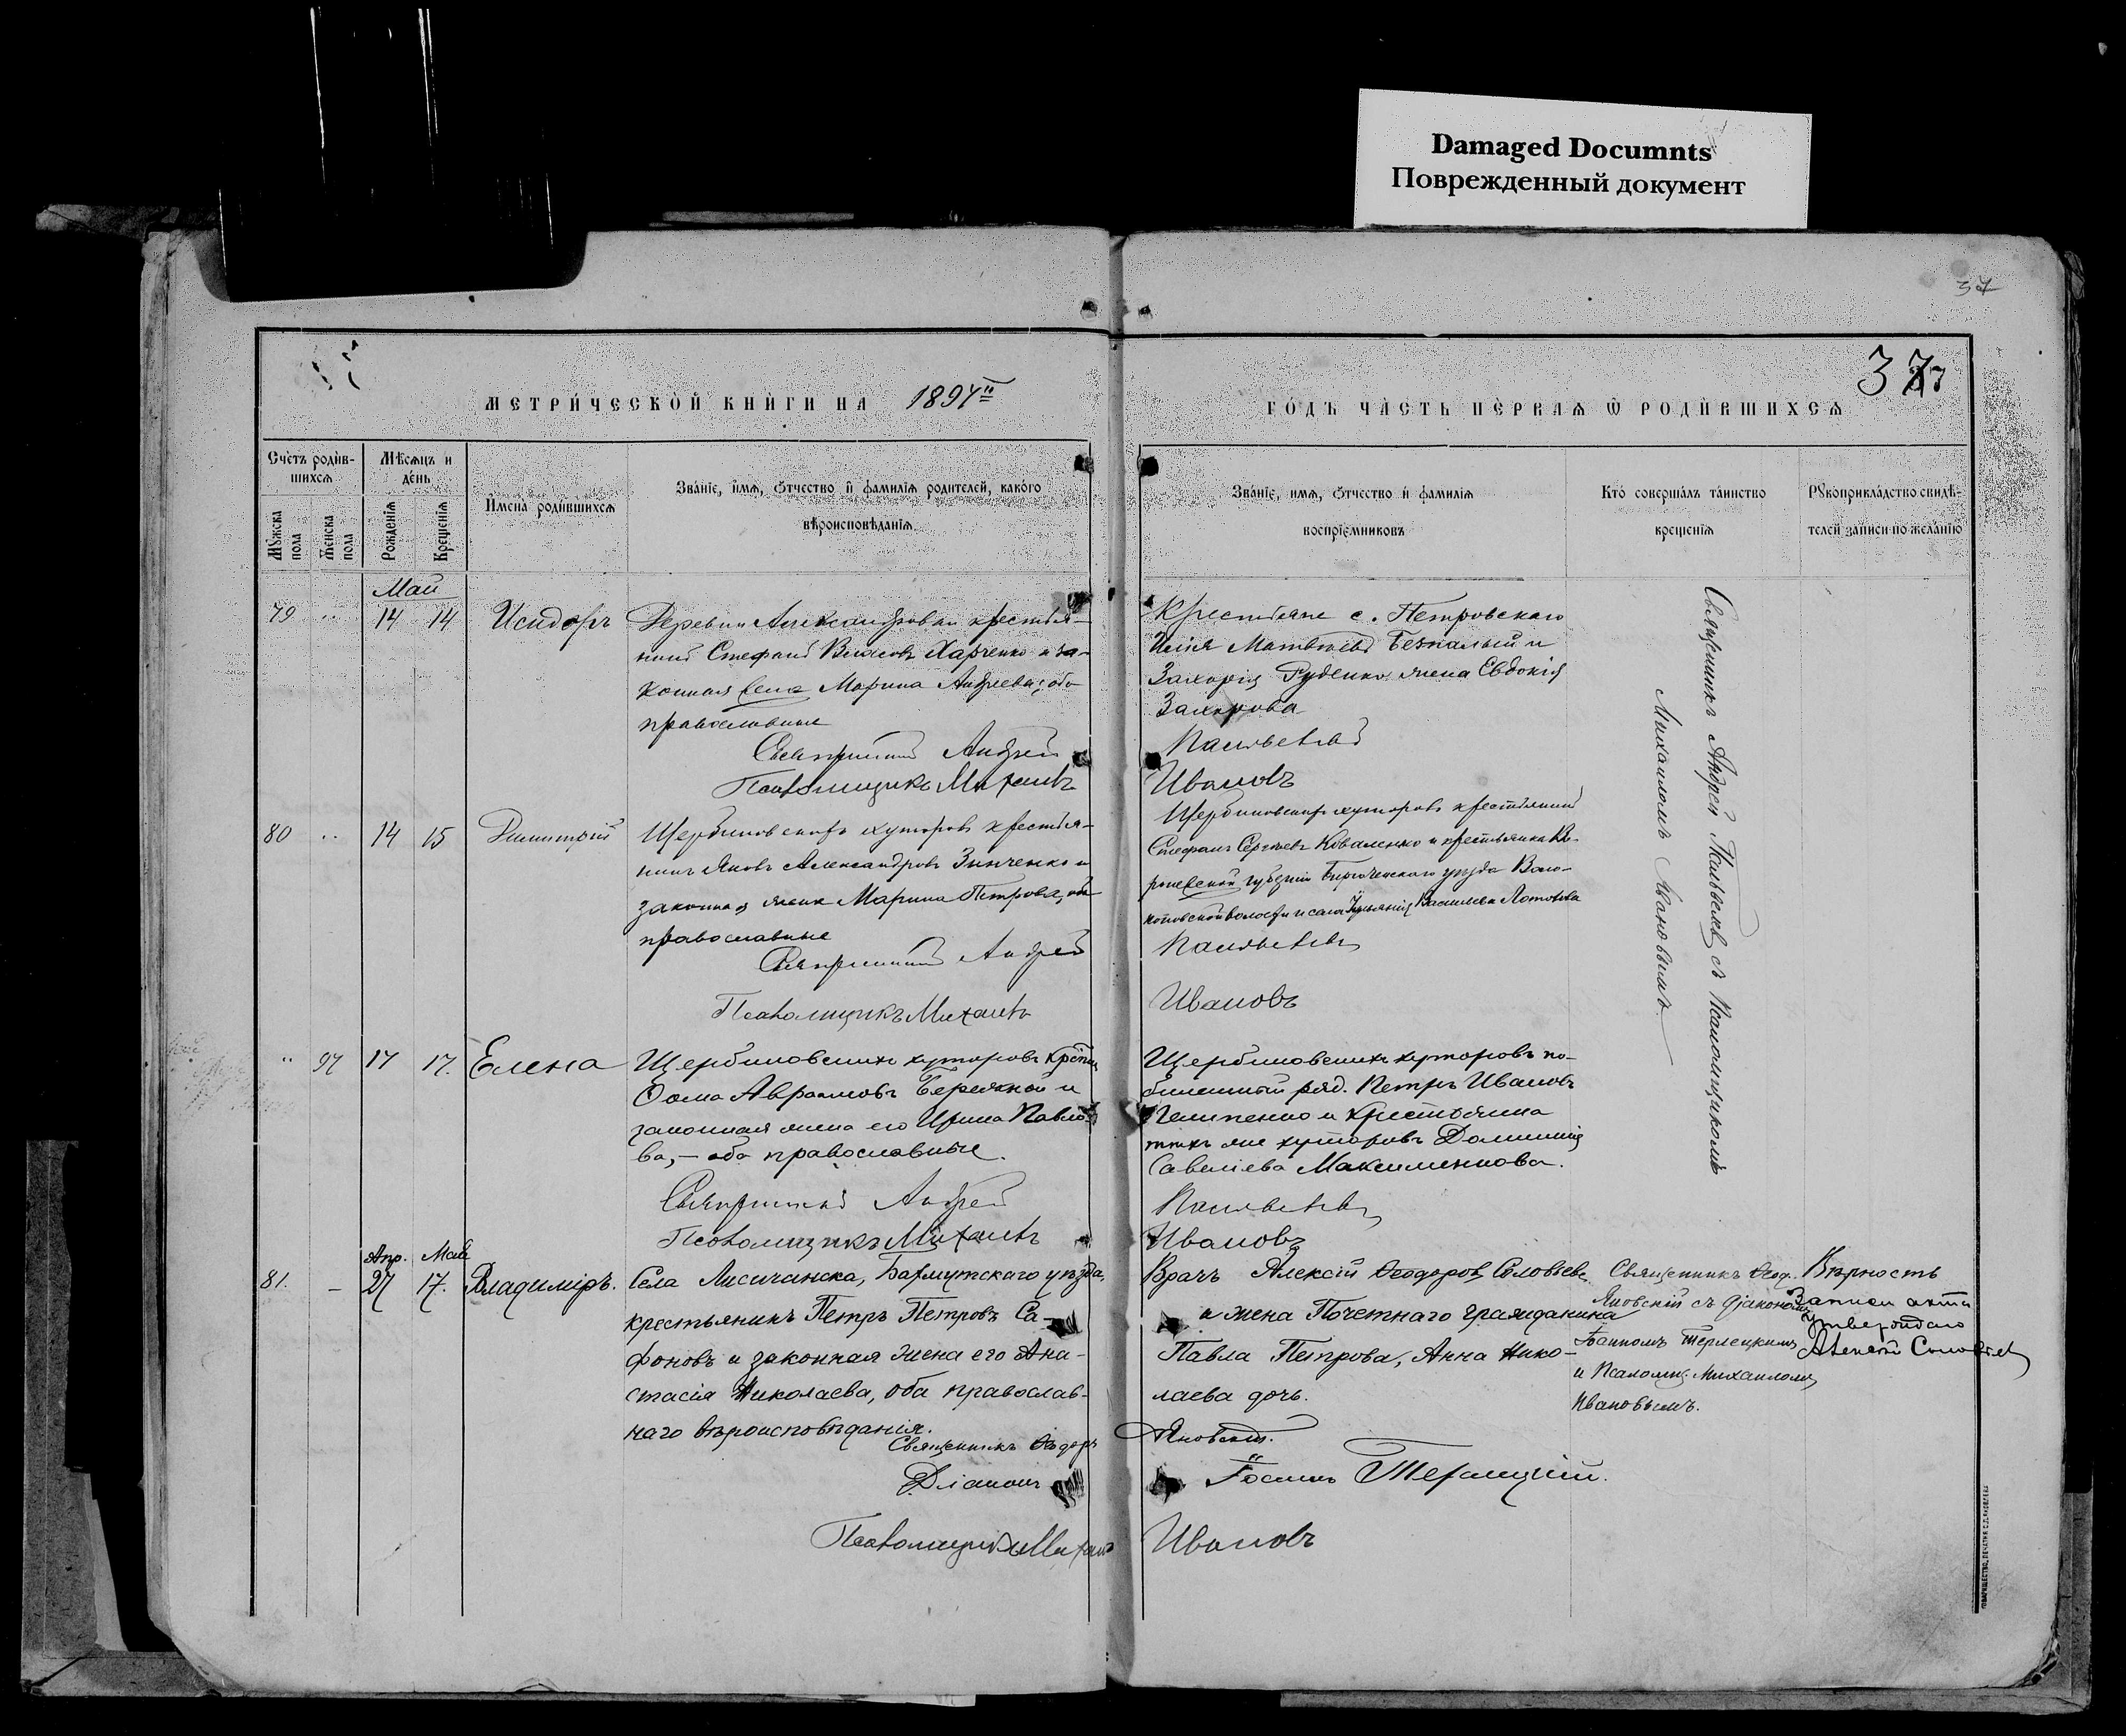 Damaged Documnts
Поврежденный документ
37
37
МЕТРИ́ЧЕСКОЙ КНИ́ГИ НА 1894
ГО́ДЪ ЧА́СТЬ ПЕ́РВАѦ Ѡ РОДИ́ВШИХСѦ
Счетъ роди́в-
шихсѧ
Мꙋжска
пола
Женска
пола
Мѣсѧцъ и
де́нь
Рожденїѧ
Крещенїѧ
Имена роди́вшихсѧ
Зва́нїе, и́мѧ, ѻ҆тчество и фами́лїѧ родителей, како́го
вѣроисповѣданїѧ
Зва́нїе, имѧ, ѻ҆тчество и фами́лїѧ
воспрїемниковъ
Кто̀ соверша́лъ та́инство
крещенїѧ
Рꙋкоприкла́дство свидѣ-
телей за́писи по жела́нїю
Май
79 " 14 14 Исидоръ
Деревни Александровки крестья-
нинъ Стефанъ Власовъ Харченко и за-
конная жена Марина Андреева, оба
православные
Священникъ Андрей
Псаломщикъ Михаилъ
Крестьяне с. Петровскаго
Илія Матвѣевъ Безпалый и
Захарія Руденко жена Евдокія
Захарова
Иановъ
80 " 14 15 Димитрій
Щербиновскихъ хуторовъ крестья-
нинъ Яковъ Александровъ Зинченко и
законная жена Марина Петрова, оба
православные
Священникъ Андрей
Псаломщикъ Михаилъ
Щербиновскихъ хуторовъ крестьянинъ
Стефанъ Сергѣевъ Коваленко и крестьянка Во-
ронежской губерніи Бирюченскаго уѣзда
Василіева
Ивановъ
Священникъ Андрей съ Псаломщикомъ
Михаиломъ Ивановымъ
" 97 17 17. Елена
Щербиновскихъ хуторовъ крестьян.
Ѳома Авраамовъ Бережной и
законная жена его Ирина Павло-
ва, – оба православные.
Священникъ Андрей
Псаломщикъ Михаилъ
Щербиновскихъ хуторовъ
ряд. Петръ Ивановъ
и крестьянка
тѣхъ же хуторовъ Домникія
Савеліева Максименкова.
Ивановъ
Апр. Май
81. – 27 17. Владиміръ.
Села Лисичанска, Бахмутскаго уѣзда,
крестьянинъ Петръ Петровъ Са-
фоновъ и законная жена его Ана-
стасія Николаева, оба православ-
наго вѣроисповѣданія.
Священникъ Ѳеодоръ
Діаконъ
Псаломщикъ Михаилъ
Врачъ Алексѣй Ѳеодоровъ Соловьевъ
и жена Почетнаго гражданина
Павла Петрова, Анна Нико-
лаева дочь.
Яновскій.
Іоаннъ Терлецкій.
Ивановъ
Священникъ Ѳеод.
Яновскій съ діакономъ
Іоанномъ Терлецкимъ
и Псаломщ. Михаиломъ
Ивановымъ.
Вѣрность
Записи акта
Утверждаю
Алексѣй Соловьевъ